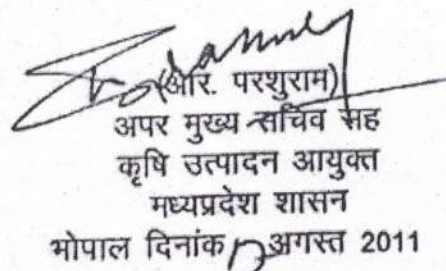 (आर. परशुराम)
अपर मुख्य सचिव सह
कृषि उत्पादन आयुक्त
मध्यप्रदेश शासन
भोपाल दिनांक अगस्त 2011